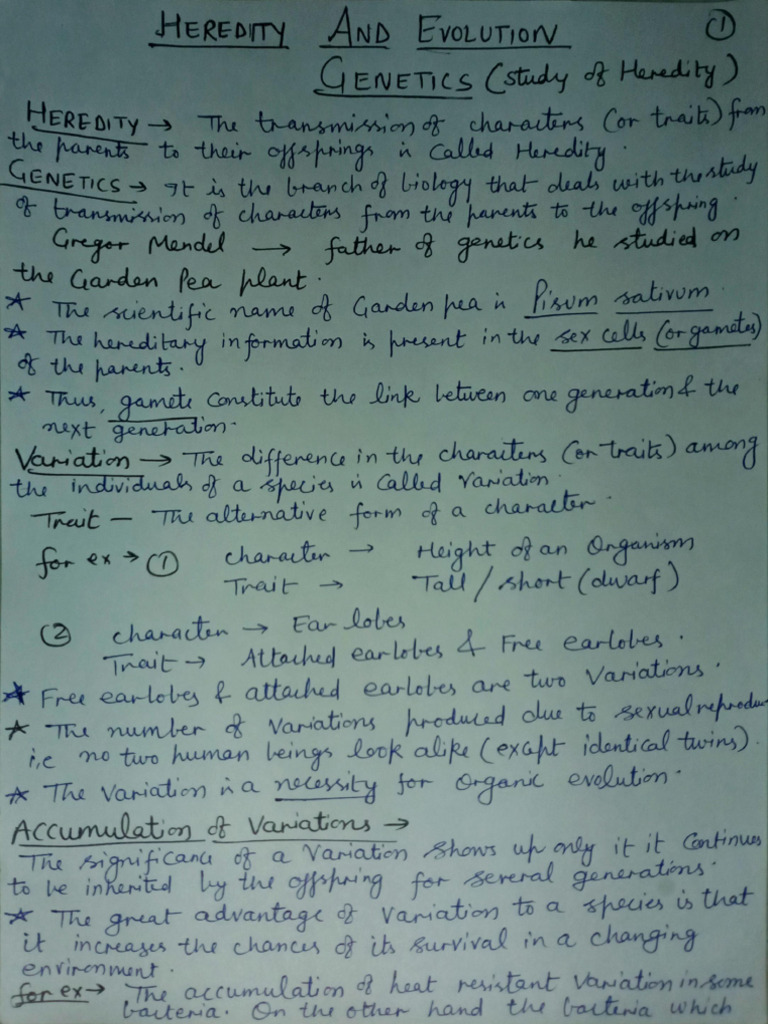 HEREDITY AND EVOLUTION ①
GENETICS (study of Heredity)
HEREDITY → The transmission of characters (or traits) from
the parents to their offsprings is Called Heredity.
GENETICS → It is the branch of biology that deals with the study
of transmission of characters from the parents to the offspring.
Gregor Mendel → father of genetics he studied on
the Garden Pea plant.
* The scientific name of Garden pea is Pisum sativum.
* The hereditary information is present in the sex cells (or gametes)
of the parents.
* Thus, gamete Constitute the link between one generation & the
next generation.
Variation → The difference in the characters (or traits) among
the individuals of a species is Called Variation.
Trait — The alternative form of a character.
for ex → ① character → Height of an Organism
Trait → Tall / short (dwarf)
② character → Ear lobes
Trait → Attached earlobes & Free earlobes.
* Free earlobes & attached earlobes are two Variations.
* The number of Variations produced due to sexual reprodu
i.e no two human beings look alike (except identical twins).
* The Variation is a necessity for Organic evolution.
ACCUMULATION of VARIATIONS →
The significance of a Variation shows up only it it Continues
to be inherited by the offspring for several generations.
* The great advantage of Variation to a species is that
it increases the chances of its survival in a changing
environment.
for ex → The accumulation of heat resistant Variation in some
bacteria. On the other hand the bacteria which